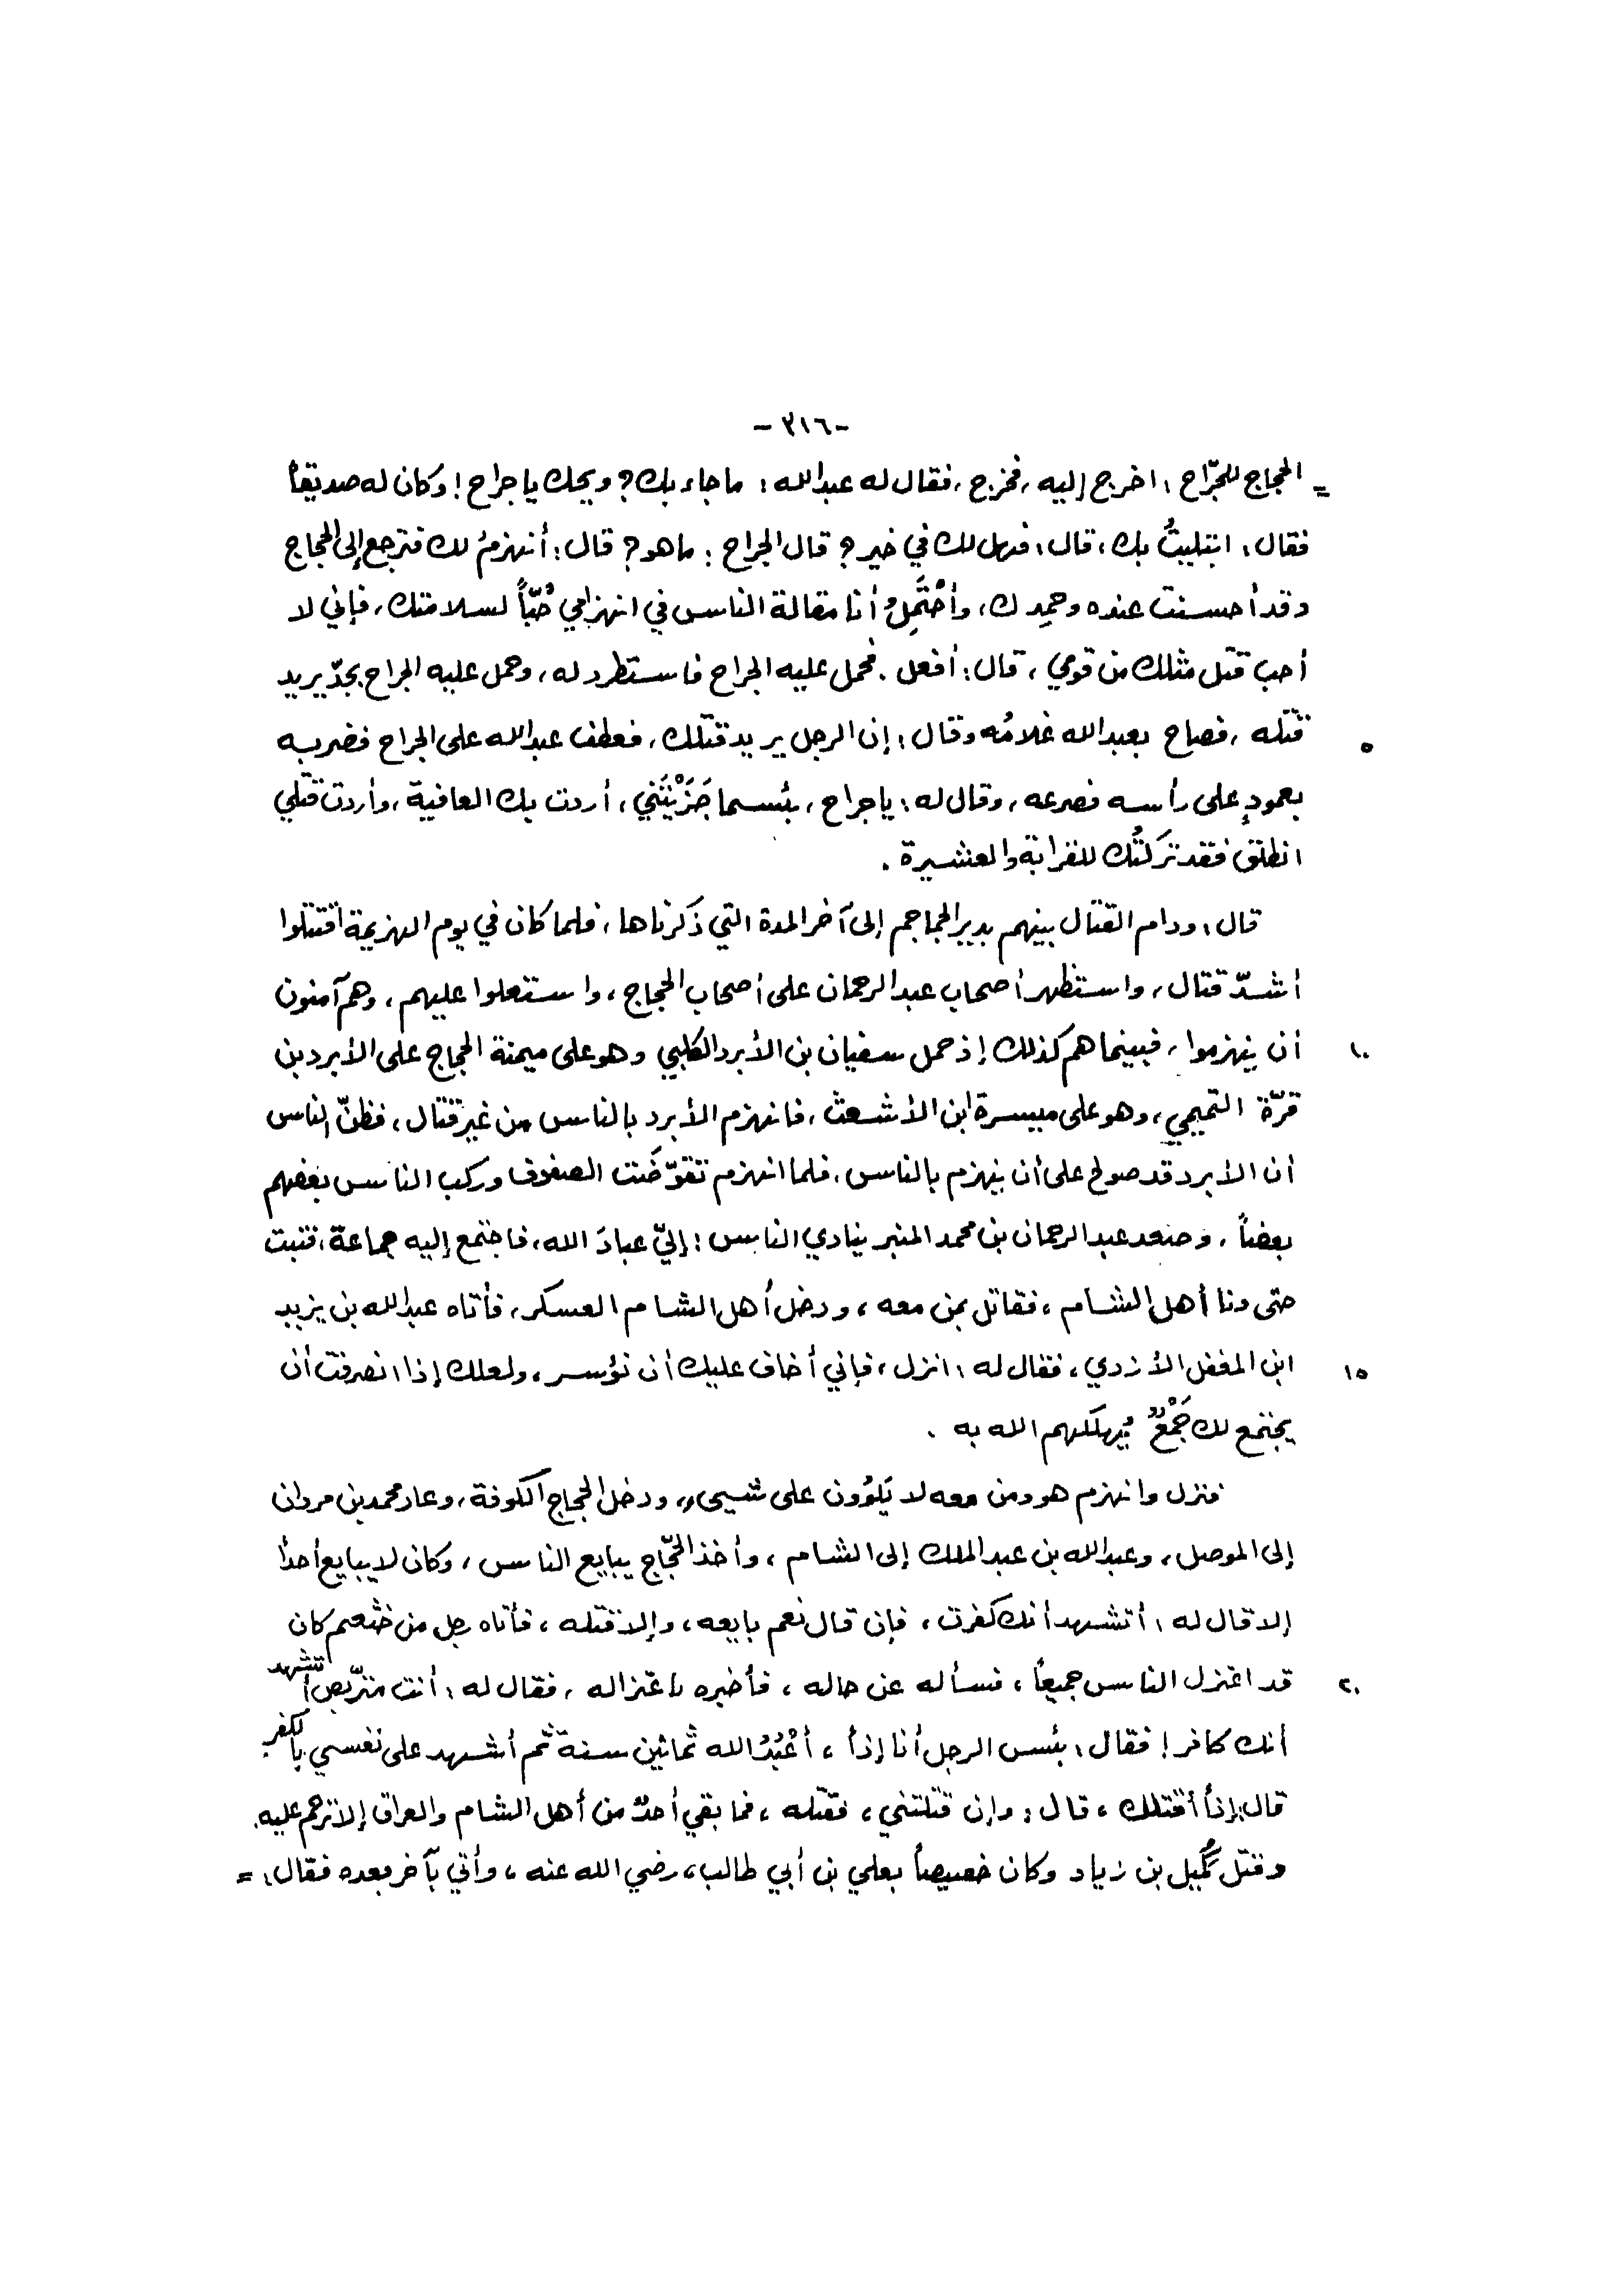 -٣١٦-
= الحجاج للجّراح: اخرج إليه، فخرج، فقال له عبدالله: ما جاء بك؟ ويحك يا جراح! وكان له صديقاً
فقال: ابتليتُ بك، قال: فهل لك في خير؟ قال الجراح: ما هو؟ قال: أنهزمُ لك فترجع إلى الحجاج
وقد أحسنت عنده وحمِدك، وأحْتَمِلُ أنا مقالة الناس في انهزامي حُبّاً لسلامتك، فإني لا
أحب قتل مثلك من قومي، قال: أفعل. فحمل عليه الجراح فاستطرد له، وحمل عليه الجراح بجدّ يريد
٥ قتله، فصاح بعبدالله غلامُه وقال: إن الرجل يريد قتلك، فعطف عبدالله على الجراح فضربه
بعمودٍ على رأسه فصرعه، وقال له: يا جراح، بئسما جَزَيْتَني، أردت بك العافية، وأردت قتلي
انطلق فقد تركتُك للقرابة والعشيرة.
قال: ودام القتال بينهم بدير الجماجم إلى آخر المدة التي ذكرناها، فلما كان في يوم الهزيمة اقتتلوا
أشدّ قتال، واستظهر أصحاب عبدالرحمان على أصحاب الحجاج، واستعلوا عليهم، وهم آمنون
١٠ أن ينهزموا، فبينما هم كذلك إذ حمل سفيان بن الأبرد الكلبي وهو على ميمنة الحجاج على الأبرد بن
قرّة التميمي، وهو على ميسرة ابن الأشعث، فانهزم الأبرد بالناس من غير قتال، فظنّ الناس
أن الأبرد قد صولح على أن ينهزم بالناس، فلما انهزم تقوّضَت الصفوف وركب الناس بعضهم
بعضاً، وصعد عبدالرحمان بن محمد المنبر ينادي الناس: إليّ عبادَ الله، فاجتمع إليه جماعة، فثبت
حتى دنا أهل الشام، فقاتل بمن معه، ودخل أهل الشام العسكر، فأتاه عبدالله بن يزيد
١٥ ابن المغفل الأزدي، فقال له: انزل، فإني أخاف عليك أن تؤسر، ولعلك إذا انصرفت أن
يجتمع لك جَمْعٌ يُهلكهم الله به.
فنزل وانهزم هو ومن معه لا يَلوُون على شيىء، ودخل الحجاج الكوفة، وعاد محمد بن مروان
إلى الموصل، وعبدالله بن عبدالملك إلى الشام، وأخذ الحجّاج يبايع الناس، وكان لا يبايع أحداً
إلا قال له: أتشهد أنك كفرت، فإن قال نعم بايعه، وإلا قتله، فأتاه رجل من خثعم كان
٢٠ قد اعتزل الناس جميعاً، فسأله عن حاله، فأخبره باعتزاله، فقال له: أنت متربّص أتشهد
أنك كافر! فقال: بئس الرجل أنا إذاً، أعْبُدُ الله ثمانين سنة ثم أشهد على نفسي بالكفر
قال: إذاً أقتلك، قال: وإن قتلتني، فقتله، فما بقي أحدٌ من أهل الشام والعراق إلا ترحم عليه.
وقتل كُميل بن زياد وكان خصيصاً بعلي بن أبي طالب، رضي الله عنه، وأتي بآخر بعده فقال: =